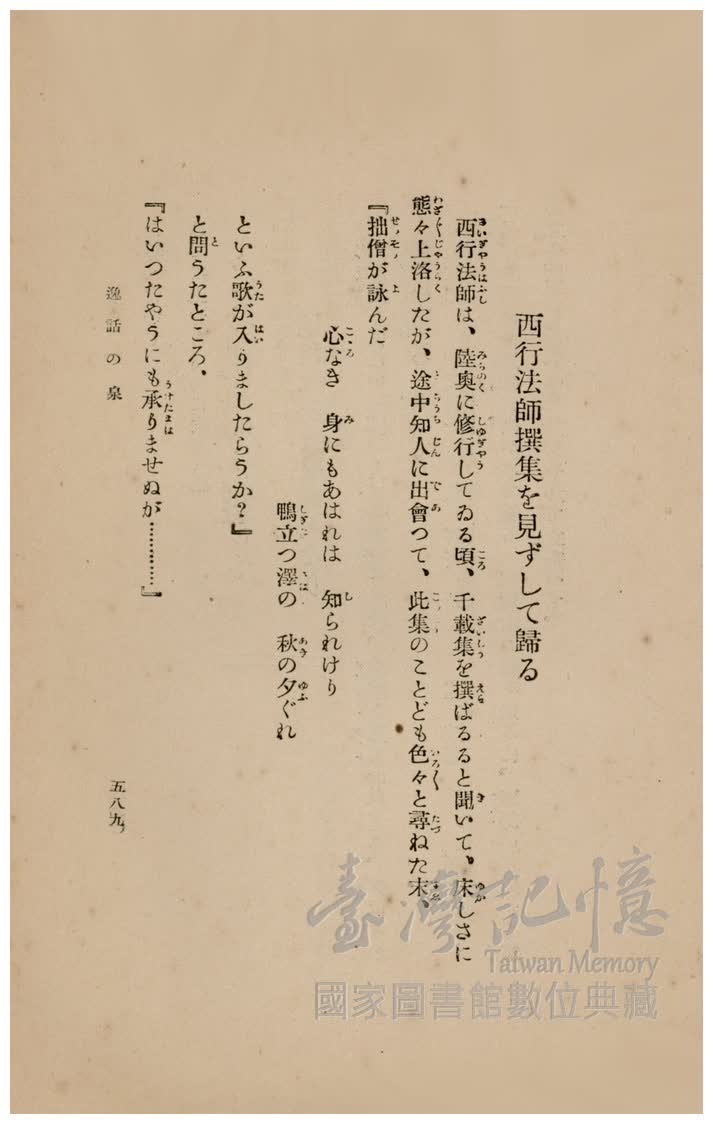 西行法師撰集を見ずして歸る
西行法師は、陸奥に修行してゐる頃、千載集を撰ばるると聞いて、床しさに
態々上洛したが、途中知人に出會つて、此集のことども色々と尋ねた末、
『拙僧が詠んだ
心なき 身にもあはれは 知られけり
鴫立つ澤の 秋の夕ぐれ
といふ歌が入りましたらうか?』
と問うたところ、
『はいつたやうにも承りませぬが…………』
逸話の泉
五八九
臺灣記憶
Taiwan Memory
國家圖書館數位典藏